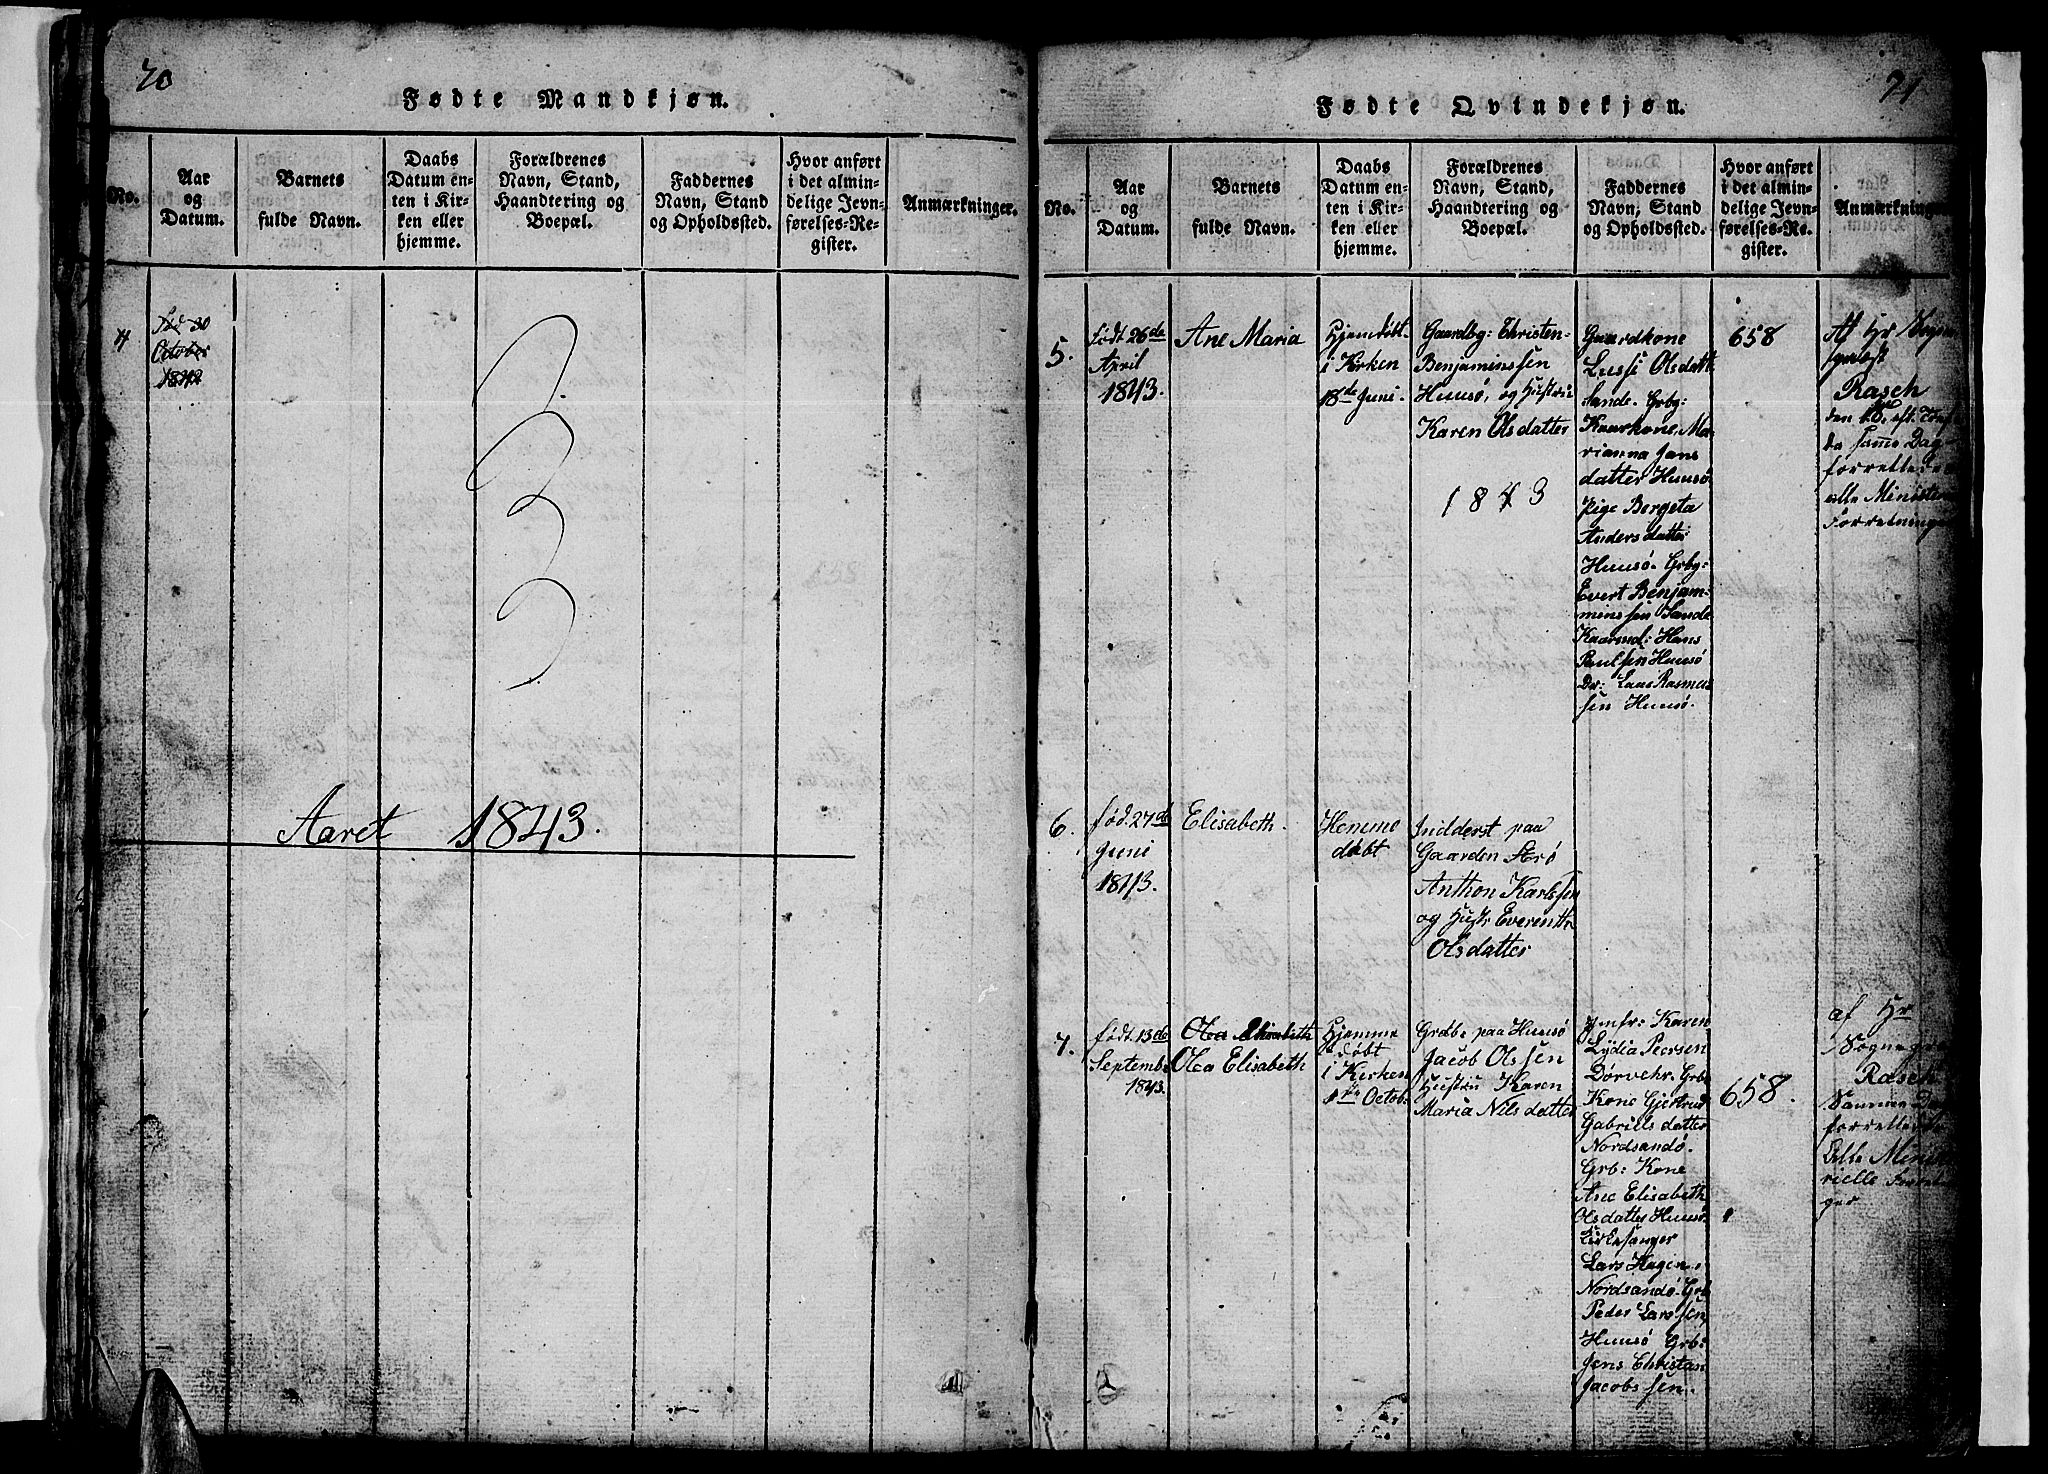 70
Fødte Mandkjøn.
No.
Aar
og
Datum.
Barnets
fulde Navn.
Daabs
Datum en-
ten i Kir-
ken eller
hjemme.
Forældrenes
Navn, Stand,
Haandtering og
Boepæl.
Faddernes
Navn, Stand
og Opholdssted.
Hvor anført
i det almin-
delige Jevn-
førelses-Re-
gister.
Anmærkninger.
Fød 30
October
1842
Aaret 1843.
71
Fødte Qvindekjøn.
No.
Aar
og
Datum.
Barnets
fulde Navn.
Daabs
Datum en-
ten i Kir-
ken eller
hjemme.
Forældrenes
Navn, Stand,
Haandtering og
Boepæl.
Faddernes
Navn, Stand
og Opholdssted.
Hvor anført
i det almin-
delige Jevn-
førelses-Re-
gister.
Anmærkninge
5.
født 26de
April
1843.
Ane Maria
Hjemdøbt
i Kirken
18de Juni.
Gaardbg: Christen
Benjaminssen
Huusø, og Hustru
Karen Olsdatter
1843
Gaardkone
Lussi Olsdatt
Sande. Grbg:
Kaarkone, Ma-
rianna Jans
datter Huusø.
Pige Bergeta
Anders datter
Huusø. Grbg:
Evert Benjam-
minssen Sande
Kaarmd: Hans
Paulsen Huusø
Dr: Laus Rasmus
sen Huusø.
658
Af Hr Sogne
præst
Rasch
den 18de eft. Tref
da samme Dag
forrettede
alle Ministe
Forretninger
6.
fød. 27de
Juni
1843.
Elisabeth.
Hemme
døbt
Indderst paa
Gaarden Sørø
Anthon Karlssen
og Hustr Everenthe
Olsdatter
7.
født 13de
Septembr
1843.
Ola Elisabeth
Ola Elisabeth
Hjemme
døbt,
i Kirken
1ste Octob:
Grdb: paa Huusø
Jacob Olssen
Hustru Karen
Maria Nilsdatter
Jmfr: Karen
Lydia Peersen
Dørvehr. Grb:
Kone Gjertrud
Gabriels datter
Nordsandø.
Grb: Kone
Ane Elisabeth
Olsdatter Huusø.
Kirkesanger
Lars Hagen.
Nordsandø. Grb
Peder Larssen,
Huusø Grb:
Jens Christian
Jacobssen.
658.
af Hr
Sognepræ
Rasch
Samme Dag
forrettede
alle Ministe
rielle Forretnin
ger